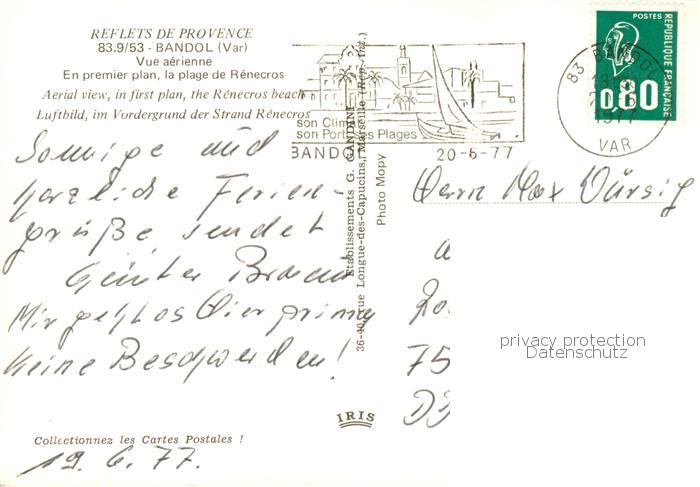 REFLETS DE PROVENCE
83.9/53 - BANDOL (Var)
Vue aérienne
En premier plan, la plage de Rénecros
Aerial view, in first plan, the Rénecros beach
Luftbild, im Vordergrund der Strand Rénecros
son Climat
son Port ses Plages
BANDOL
20-6-77
83 BANDOL
1977
VAR
POSTES
REPUBLIQUE FRANÇAISE
0,80
Sonnige und
herzliche Ferien-
grüße sendet
Günter
Mir geht es hier prima
Keine Beschwerden!
19.6.77.
Etablissements G. GANDINI
36-40, rue Longue-des-Capucins, Marseille (Rep. Int.)
Photo Mopy
IRIS
Collectionnez les Cartes Postales !
Herrn Max Würsig
75
privacy protection
Datenschutz